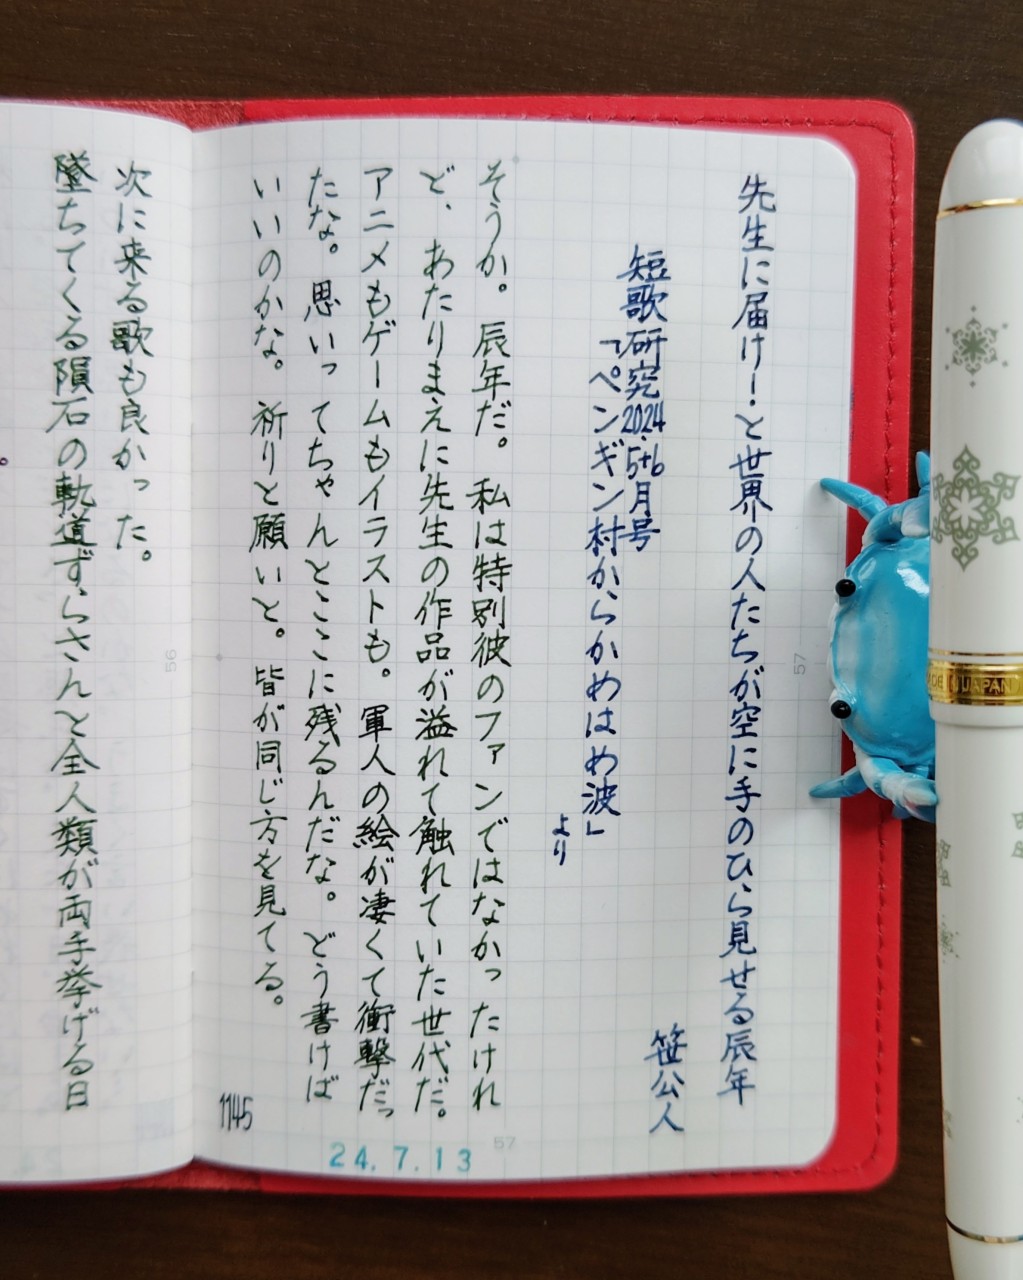 先生に届け!と世界の人たちが空に手のひら見せる辰年
笹公人
短歌研究2024.5+6月号
「ペンギン村からかめはめ波」
より
そうか。辰年だ。私は特別彼のファンではなかったけれ
ど、あたりまえに先生の作品が溢れて触れていた世代だ。
アニメもゲームもイラストも。軍人の絵が凄くて衝撃だっ
たな。思いってちゃんとここに残るんだな。どう書けば
いいのかな。祈りと願いと。皆が同じ方を見てる。
1145
24.7.13
57
57
次に来る歌も良かった。
墜ちてくる隕石の軌道ずらさんと全人類が両手挙げる日
56
JAPAN